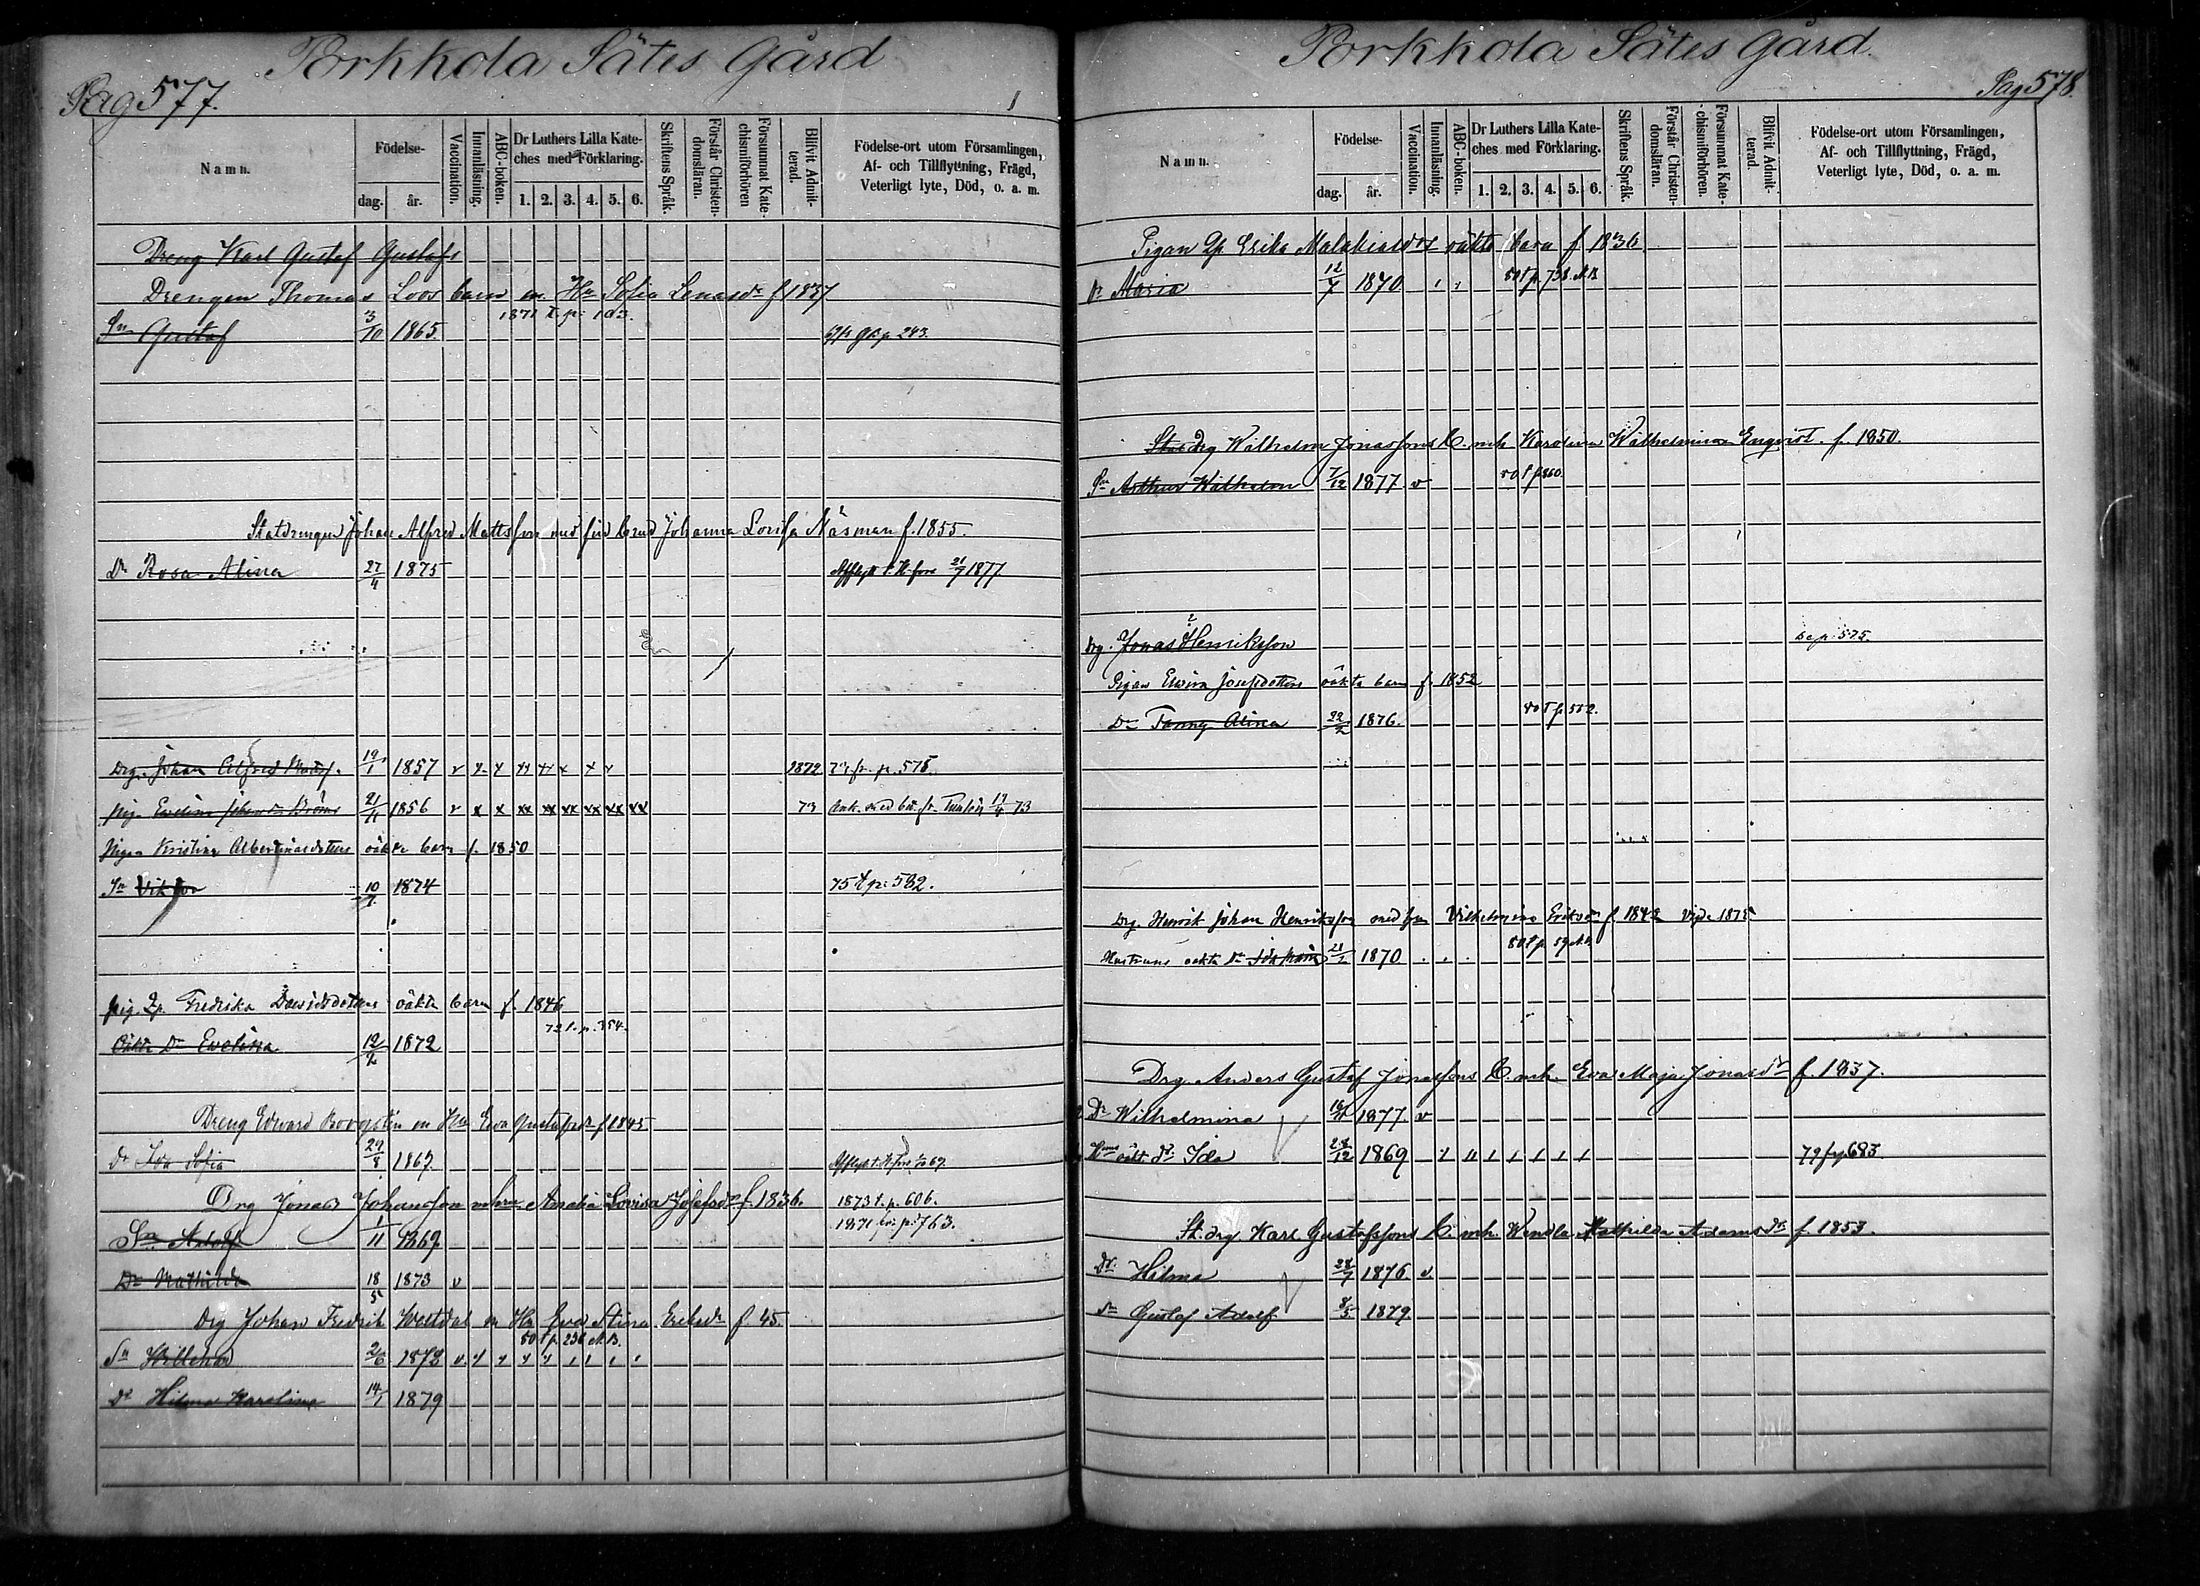 Porkkola Sätes Gård
Pag 577.
Namn.
Födelse-
dag. år.
Vaccination.
Innanläsning.
ABC-boken.
Dr Luthers Lilla Kate-
ches med Förklaring.
1. 2. 3. 4. 5. 6.
Skriftens Språk.
Förstår Christen-
domsläran.
Försummat Kate-
chismiförhören
Blifvit Admit-
terad.
Födelse-ort utom Församlingen,
Af- och Tillflyttning, Frägd,
Veterligt lyte, Död, o. a. m.
Dreng Karl Gustaf Gustafs
Drengen Thomas Loos barn m. Hu Sofia Lenasdr f 1837
1871 t. p: 103.
Sn Gustaf 3/10 1865. p. 243.
Statdrengen Johan Alfred Mattsson med sin brud Johanna Lovisa Näsman f. 1855.
Dr Rosa Alina 27/4 1875 Afflytt t. H:fors 21/7 1877.
Drg. Johan Alfred 19/1 1857 v x x xx xx x x x 1872 73 fr. p. 575.
Pig. Evelina 21/11 1856 v x x xx xx xx xx xx xx 73 Ank. med bet. fr. 73
Pigan Kristina Albertinasdotters oäkta barn f. 1850
Sn Viktor 10/7 1874 75 t p: 582.
pig. Fredrika Davidsdotters oäkta barn f. 1846
72 t. p. 354.
Oäkta Dr Evelina 12/2 1872
Dreng Edvard m Hu Eva Gustafsdr f 1845
Dr Ida Sofia 29/8 1867. Afflytt t. H:fors 69.
Drg Jonas Johansson m hu Amalia Lovisa Josefsdr f. 1836. 1873 t. p. 606.
1871 fr. p. 763.
Sn Adolf 1/11 1869
Dr Mathilda 18/5 1873 v
Drg Johan Fredrik Westdal m Hu Eva Stina Eriksdr f. 45.
80 t p. 236 N.B.
Sn Willehad 2/6 1873 v
Dr Hilma Karolina 14/1 1879
Porkkola Sätes Gård.
Pag 578.
Namn.
Födelse-
dag. år.
Vaccination.
Innanläsning.
ABC-boken.
Dr Luthers Lilla Kate-
ches med Förklaring.
1. 2. 3. 4. 5. 6.
Skriftens Språk.
Förstår Christen-
domsläran.
Försummat Kate-
chismiförhören.
Blifvit Admit-
terad.
Födelse-ort utom Församlingen,
Af- och Tillflyttning, Frägd,
Veterligt lyte, Död, o. a. m.
Pigan Qp Erika Malakiasdrs oäkta barn f 1836.
Dr Maria 12/7 1870 80 t p. 738. N.B
Statdrg Wilhelm Jonassons B. mh Karolina Wilhelmina Engqvist. f. 1850.
Sn Arthur Wilhelm 7/12 1877 v 80 t p 860.
Drg. Jonas Henriksson Se p. 575.
Pigan Elvira Josefsdotters oäkta barn f. 1852
Dr Fanny Alina 22/2 1876. 80 t p. 582.
Drg. Henrik Johan Henriksson med hu Vilhelmina Eriksdr f. 1842 Vigde 1875
Hustruns oäkta Dr Ida Maria 21/2 1870
Drg. Anders Gustaf Jonassons B. mh. Eva Maja Jonasdr f. 1837.
Dr Wilhelmina 16/11 1877. v
Huns oäkt dr Ida 28/12 1869 79 f p. 683.
St. drg Karl Gustafssons B. mh. Wendla Mathilda Adamsdr f. 1853.
Dr Hilma 28/7 1876. v.
Sn Gustaf Adolf 8/5 1879.